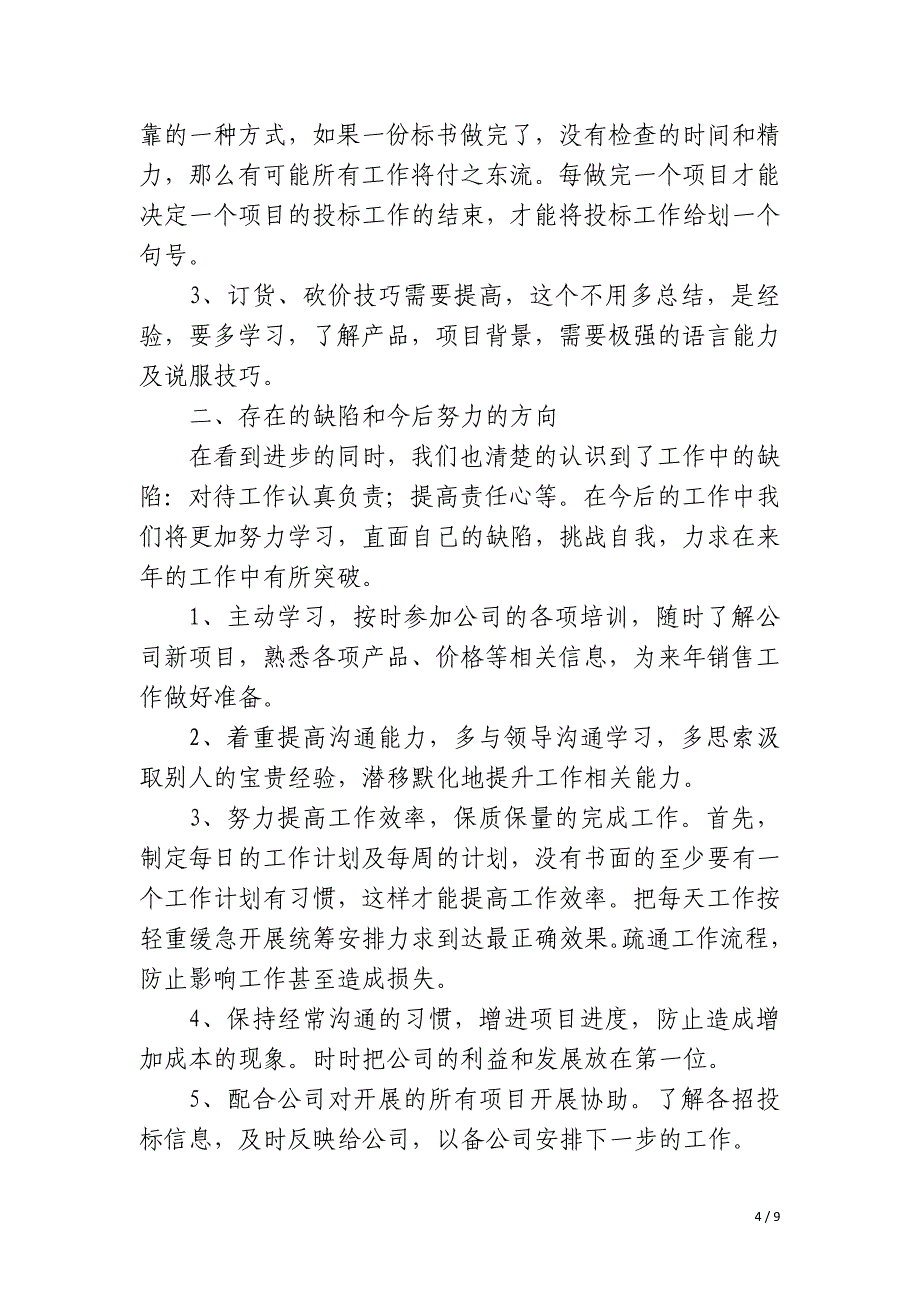 靠的一种方式，如果一份标书做完了，没有检查的时间和精
力，那么有可能所有工作将付之东流。每做完一个项目才能
决定一个项目的投标工作的结束，才能将投标工作给划一个
句号。
3、订货、砍价技巧需要提高，这个不用多总结，是经
验，要多学习，了解产品，项目背景，需要极强的语言能力
及说服技巧。
二、存在的缺陷和今后努力的方向
在看到进步的同时，我们也清楚的认识到了工作中的缺
陷：对待工作认真负责；提高责任心等。在今后的工作中我
们将更加努力学习，直面自己的缺陷，挑战自我，力求在来
年的工作中有所突破。
1、主动学习，按时参加公司的各项培训，随时了解公
司新项目，熟悉各项产品、价格等相关信息，为来年销售工
作做好准备。
2、着重提高沟通能力，多与领导沟通学习，多思索汲
取别人的宝贵经验，潜移默化地提升工作相关能力。
3、努力提高工作效率，保质保量的完成工作。首先，
制定每日的工作计划及每周的计划，没有书面的至少要有一
个工作计划有习惯，这样才能提高工作效率。把每天工作按
轻重缓急开展统筹安排力求到达最正确效果。疏通工作流程，
防止影响工作甚至造成损失。
4、保持经常沟通的习惯，增进项目进度，防止造成增
加成本的现象。时时把公司的利益和发展放在第一位。
5、配合公司对开展的所有项目开展协助。了解各招投
标信息，及时反映给公司，以备公司安排下一步的工作。
4 / 9